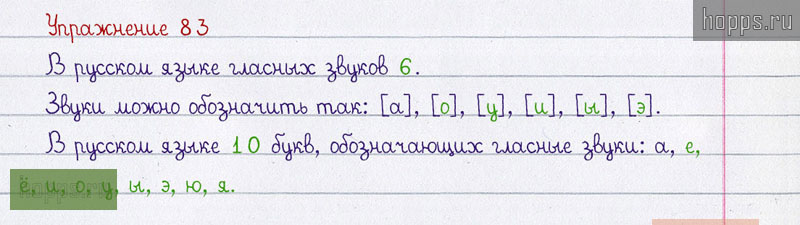 Упражнение 83
hopps.ru
В русском языке гласных звуков 6.
Звуки можно обозначить так: [а], [о], [у], [и], [ы], [э].
В русском языке 10 букв, обозначающих гласные звуки: а, е,
ё, и, о, у, ы, э, ю, я.